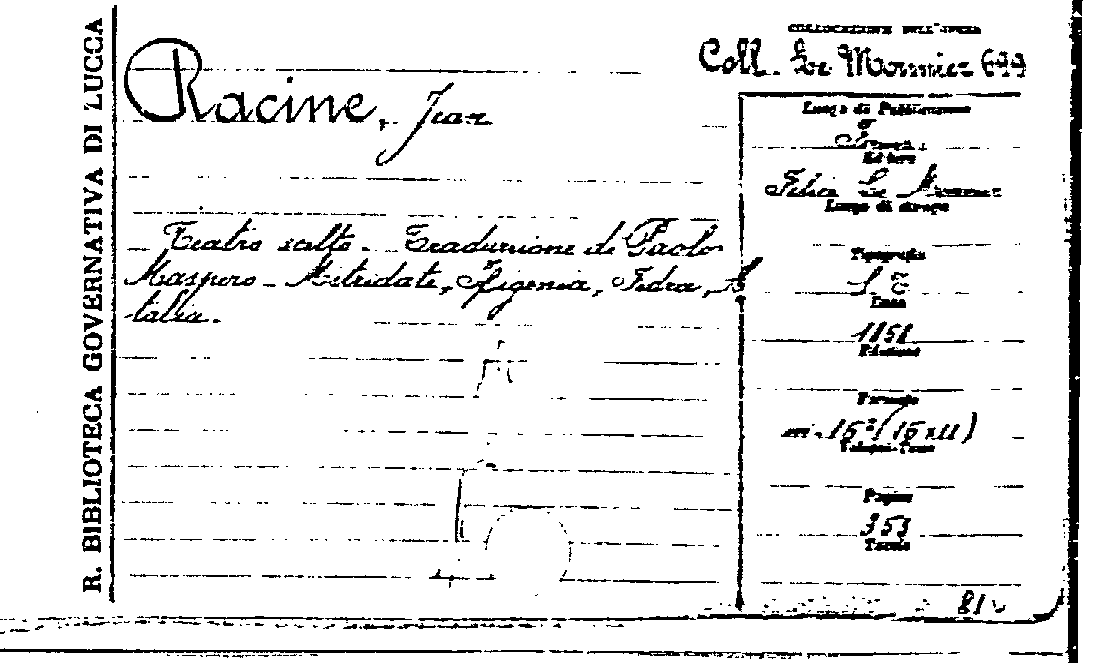 R. BIBLIOTECA GOVERNATIVA DI LUCCA
COLLOCAZIONE DELL'OPERA
Coll. Le Monnier 699
Racine, Jean
Teatro scelto - Traduzione di Paolo
Maspero - Mitridate, Ifigenia, Fedra, A
talia.
Luogo di Pubblicazione
Editore
Felice Le Monnier
Luogo di stampa
Tipografia
Data
1858
Edizione
Formato
in-16° (16x11)
Volumi-Tomo
Pagine
353
Tavole
81